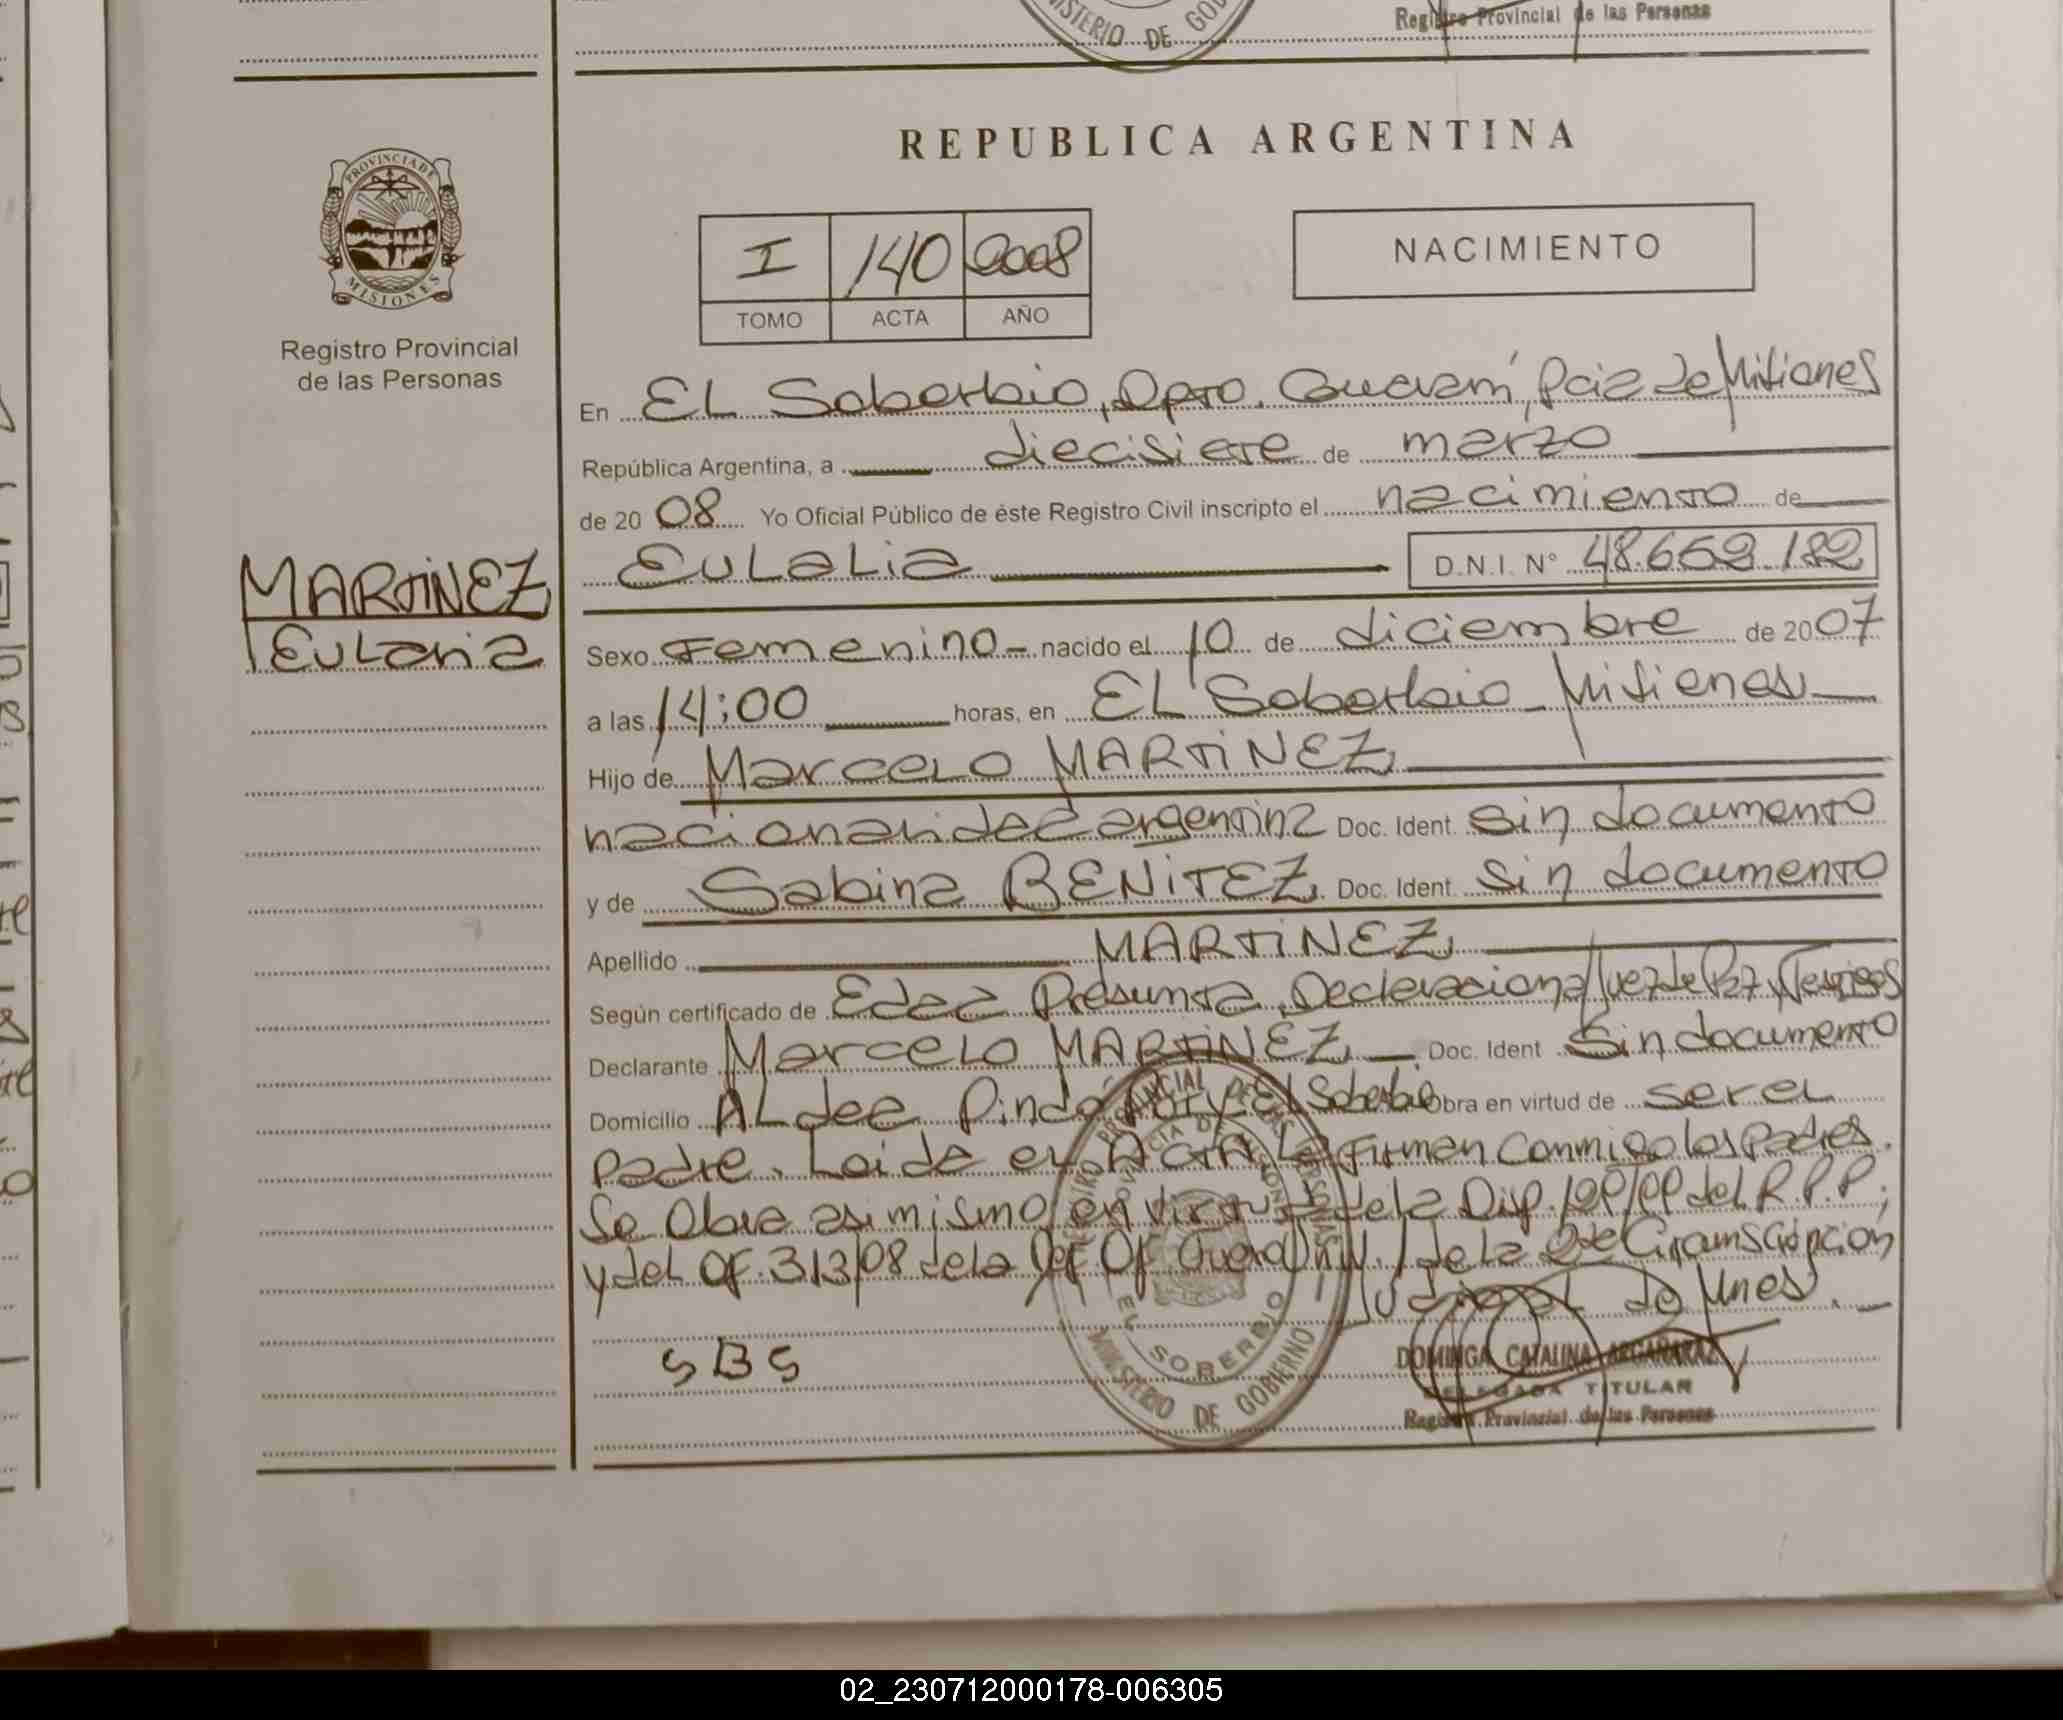 MINISTERIO DE GOB
Registro Provincial de las Personas
REPUBLICA ARGENTINA
PROVINCIA DE
MISIONES
Registro Provincial
de las Personas
I 140 2008
TOMO ACTA AÑO
NACIMIENTO
En EL Soberbio, Dpto. Guaraní, Pcia de Misiones
República Argentina, a diecisiete de marzo
de 20 08 Yo Oficial Público de éste Registro Civil inscripto el nacimiento de
Eulalia D.N.I. N° 48.659.182
MARTINEZ
Eulalia
Sexo Femenino - nacido el 10 de diciembre de 2007
a las 14:00 horas, en EL Soberbio - Misiones
Hijo de Marcelo MARTINEZ,
nacionalidad argentina Doc. Ident. sin documento
y de Sabina BENITEZ. Doc. Ident. sin documento
Apellido MARTINEZ
Según certificado de Edad Presunta, Declaracion Juez de Paz y Testigos
Declarante Marcelo MARTINEZ Doc. Ident Sin documento
Domicilio ALdea Pindó Poty El Soberbio Obra en virtud de ser el
padre. Leida el ACTA La firman conmigo los padres.
Se Obra asimismo en virtud de la Disp. del R.P.P;
y del OF. 313/08 de la Def. Of. de la 2da Circunscripción
Judicial de Mnes.
SBS
REGISTRO PROVINCIAL DE LAS PERSONAS
PROVINCIA DE MISIONES
EL SOBERBIO
MINISTERIO DE GOBIERNO
DOMINGA CATALINA ARGAÑARAZ
DELEGADA TITULAR
Registro Provincial de las Personas
02_230712000178-006305